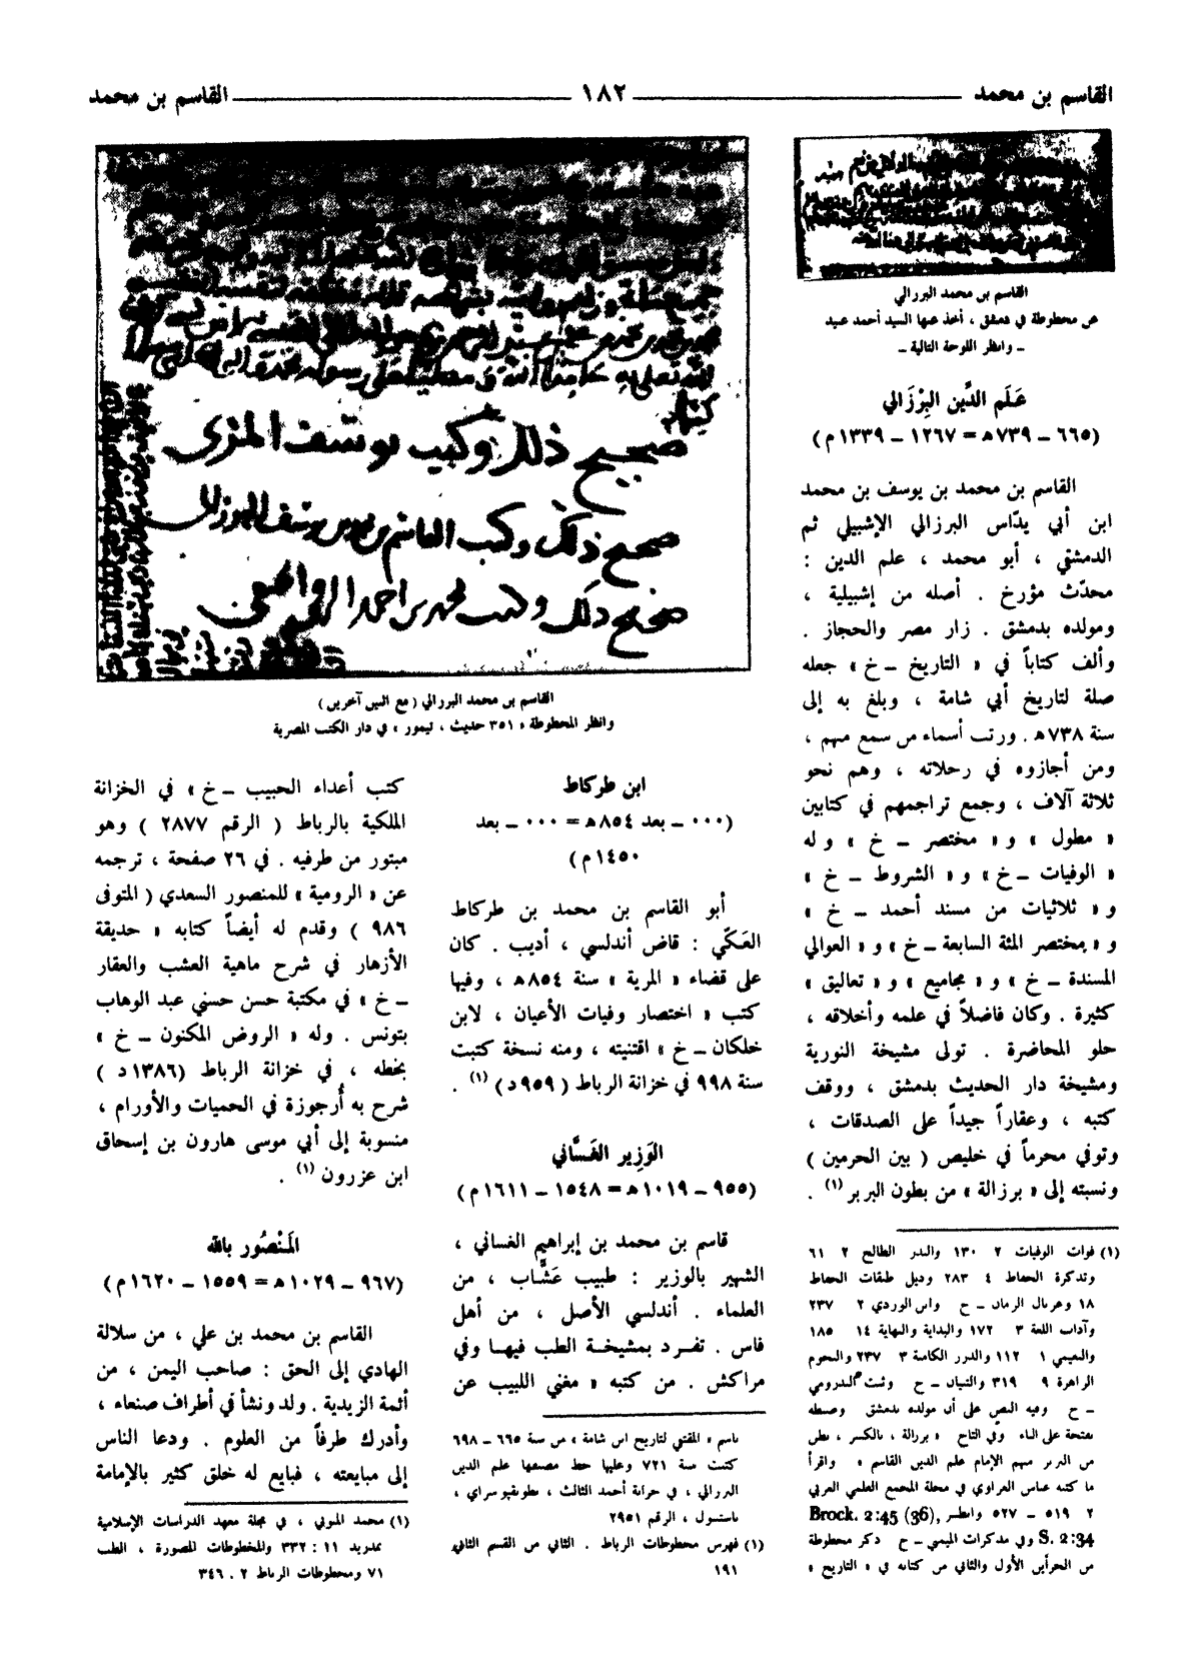 القاسم بن محمد ــــ ١٨٢ ــــ القاسم بن محمد
القاسم بن محمد البرزالي
عن مخطوطة في دمشق ، أخذ عنها السيد أحمد عبيد
ـ وانظر اللوحة التالية ـ
عَلَم الدِّين البِرْزَالي
(٦٦٥ ـ ٧٣٩ه‍ = ١٢٦٧ ـ ١٣٣٩م)
القاسم بن محمد بن يوسف بن محمد
ابن أبي يدّاس البرزالي الإشبيلي ثم
الدمشقي ، أبو محمد ، علم الدين :
محدّث مؤرخ . أصله من إشبيلية ،
ومولده بدمشق . زار مصر والحجاز .
وألف كتاباً في « التاريخ ـ خ » جعله
صلة لتاريخ أبي شامة ، وبلغ به إلى
سنة ٧٣٨ه‍ . ورتب أسماء من سمع منهم ،
ومن أجازوه في رحلاته ، وهم نحو
ثلاثة آلاف ، وجمع تراجمهم في كتابين
« مطول » و « مختصر ـ خ » وله
« الوفيات ـ خ » و « الشروط ـ خ »
و « ثلاثيات من مسند أحمد ـ خ »
و « مختصر المئة السابعة ـ خ » و « العوالي
المسندة ـ خ » و « مجاميع » و « تعاليق »
كثيرة . وكان فاضلاً في علمه وأخلاقه ،
حلو المحاضرة . تولى مشيخة النورية
ومشيخة دار الحديث بدمشق ، ووقف
كتبه ، وعقاراً جيداً على الصدقات ،
وتوفي محرماً في خليص ( بين الحرمين )
ونسبته إلى « برزالة » من بطون البربر (١) .
(١) فوات الوفيات ٢ ١٣٠ والبدر الطالع ٢ ٦١
وتذكرة الحفاظ ٤ ٢٨٣ وذيل طبقات الحفاظ
١٨ وغربال الزمان ـ خ وابن الوردي ٢ ٢٣٧
وآداب اللغة ٣ ١٧٢ والبداية والنهاية ١٤ ١٨٥
والنعيمي ١ ١١٢ والدرر الكامنة ٣ ٢٣٧ والنجوم
الزاهرة ٩ ٣١٩ والتبيان ـ خ وثبت البدرومي
ـ خ وفيه النص على أن مولده بدمشق وضبطه
بفتحة على الباء وفي التاج « برزالة ، بالكسر ، بطن
من البربر منهم الإمام علم الدين القاسم » واقرأ
ما كتبه عباس العزاوي في مجلة المجمع العلمي العربي
٢ ٥١٩ ـ ٥٢٧ وانظر Brock. 2:45 (36),
S. 2:34 وفي مذكرات الميمني ـ خ ذكر مخطوطة
من الجزأين الأول والثاني من كتابه في « التاريخ »
صحيح ذلك وكتب يوسف المزي
صحيح ذلك وكتب القاسم بن محمد بن يوسف البرزالي
صحيح ذلك وكتب محمد بن احمد
القاسم بن محمد البرزالي ( مع اثنين آخرين )
وانظر المخطوطة « ٣٥١ حديث ، تيمور » في دار الكتب المصرية
ابن طركاط
(٠٠٠ ـ بعد ٨٥٤ه‍ = ٠٠٠ ـ بعد
١٤٥٠م)
أبو القاسم بن محمد بن طركاط
العَكّي : قاض أندلسي ، أديب . كان
على قضاء « المرية » سنة ٨٥٤ه‍ ، وفيها
كتب « اختصار وفيات الأعيان ، لابن
خلكان ـ خ » اقتنيته ، ومنه نسخة كتبت
سنة ٩٩٨ في خزانة الرباط ( ٩٥٩د ) (١) .
الوَزِير الغَسَّاني
(٩٥٥ ـ ١٠١٩ه‍ = ١٥٤٨ ـ ١٦١١م)
قاسم بن محمد بن إبراهيم الغساني ،
الشهير بالوزير : طبيب عَشَّاب ، من
العلماء . أندلسي الأصل ، من أهل
فاس . تفـرد بمشيخـة الطب فيهـا وفي
مراكش . من كتبه « مغني اللبيب عن
باسم « المقتفي لتاريخ ابن شامة » من سنة ٦٦٥ ـ ٦٩٨
كتبت سنة ٧٢١ وعليها خط مصنفها علم الدين
البرزالي ، في خزانة أحمد الثالث ، طوبقبوسراي ،
باستنبول ، الرقم ٢٩٥١
(١) فهرس مخطوطات الرباط . الثاني من القسم الثاني
١٩١
كتب أعداء الحبيب ـ خ » في الخزانة
الملكية بالرباط ( الرقم ٢٨٧٧ ) وهو
مبتور من طرفيه . في ٢٦ صفحة ، ترجمه
عن « الرومية » للمنصور السعدي ( المتوفى
٩٨٦ ) وقدم له أيضاً كتابه « حديقة
الأزهار في شرح ماهية العشب والعقار
ـ خ » في مكتبة حسن حسني عبد الوهاب
بتونس . وله « الروض المكنون ـ خ »
بخطه ، في خزانة الرباط (١٣٨٦د )
شرح به أرجوزة في الحميات والأورام ،
منسوبة إلى أبي موسى هارون بن إسحاق
ابن عزرون (١) .
المَنْصُور بالله
(٩٦٧ ـ ١٠٢٩ه‍ = ١٥٥٩ ـ ١٦٢٠م)
القاسم بن محمد بن علي ، من سلالة
الهادي إلى الحق : صاحب اليمن ، من
أئمة الزيدية . ولد ونشأ في أطراف صنعاء ،
وأدرك طرفاً من العلوم . ودعا الناس
إلى مبايعته ، فبايع له خلق كثير بالإمامة
(١) محمد المنوني ، في مجلة معهد الدراسات الإسلامية
بمدريد ١١ : ٣٣٢ والمخطوطات المصورة ، الطب
٧١ ومخطوطات الرباط ٢ . ٣٤٦